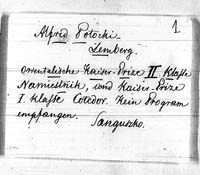 1
Alfred Potocki
Lemberg.
orientalische Kaiser-Prize II Klasse
Namiestnik, und Kaiser-Prize
I. Klasse Kein Program
empfangen.
Sanguszko.